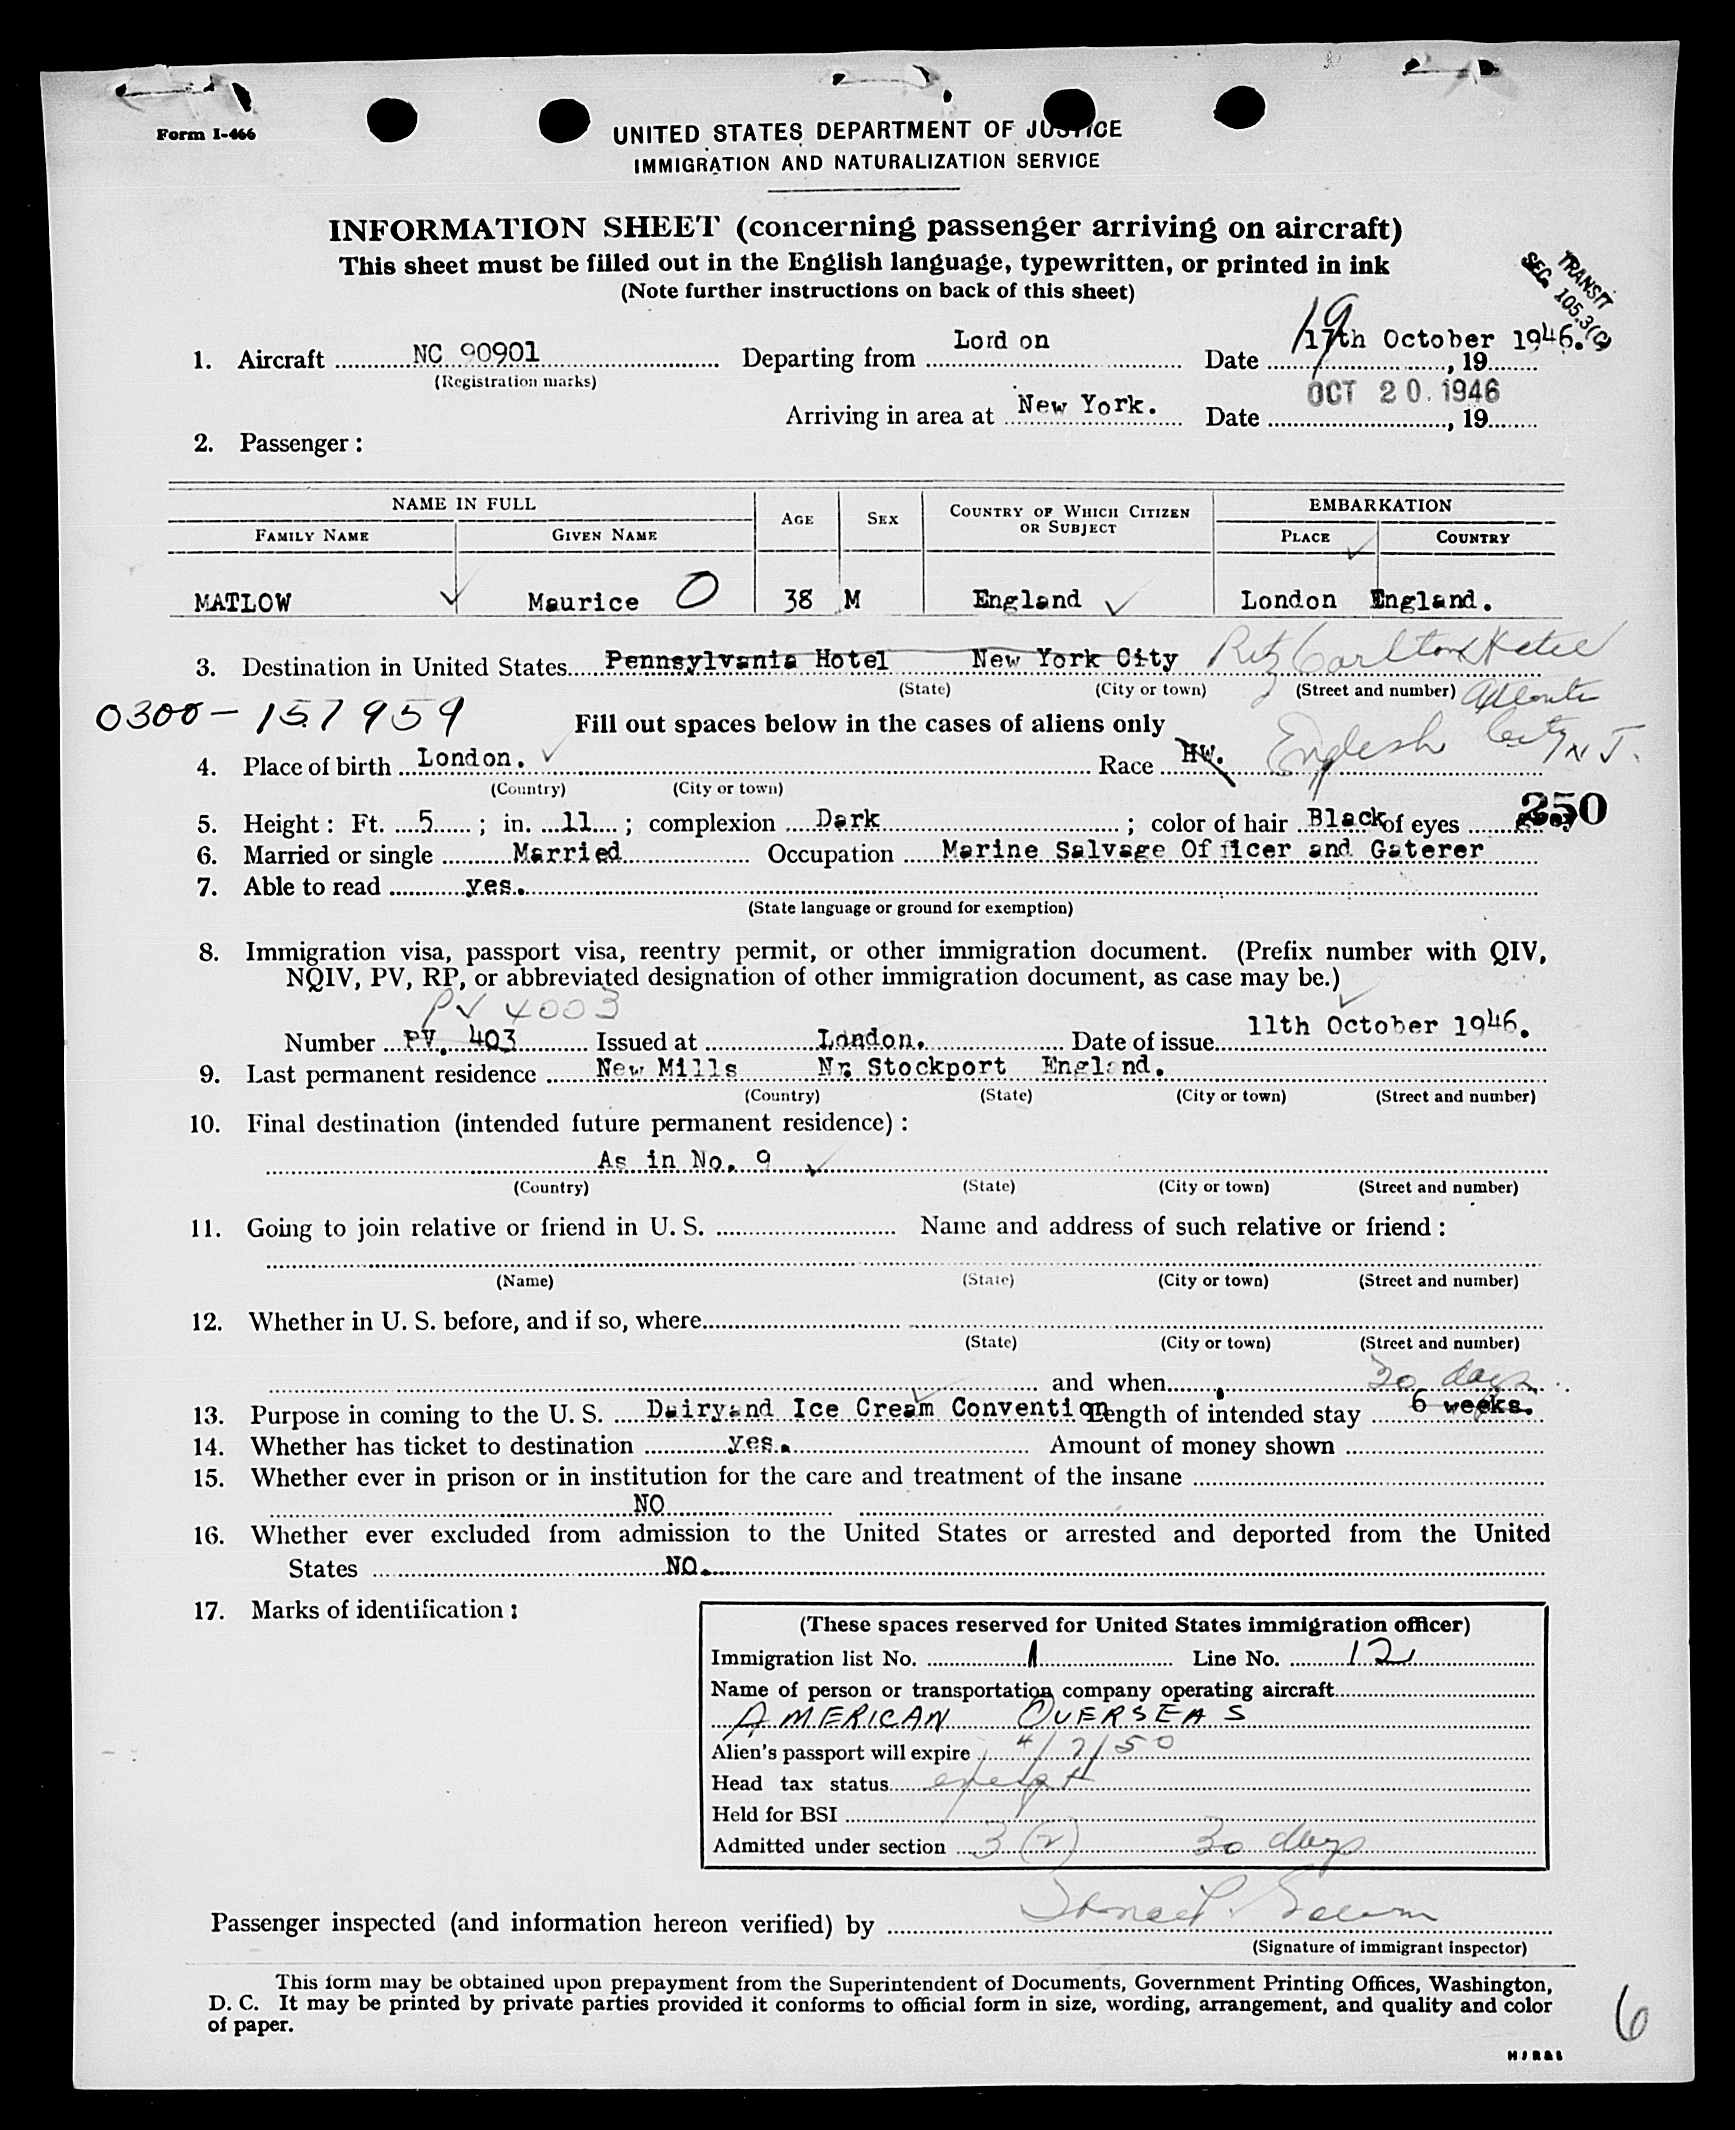 Form I-466
UNITED STATES DEPARTMENT OF JUSTICE
IMMIGRATION AND NATURALIZATION SERVICE
INFORMATION SHEET (concerning passenger arriving on aircraft)
This sheet must be filled out in the English language, typewritten, or printed in ink
(Note further instructions on back of this sheet)
TRANSIT
SEC. 105.3(C)
1. Aircraft NC 90901 Departing from Lord on Date 19 17th October 1946. , 19
(Registration marks)
OCT 20 1946
Arriving in area at New York. Date , 19
2. Passenger :
NAME IN FULL AGE SEX COUNTRY OF WHICH CITIZEN OR SUBJECT EMBARKATION
FAMILY NAME GIVEN NAME PLACE COUNTRY
MATLOW Maurice O 38 M England London England.
3. Destination in United States Pennsylvania Hotel New York City Ritz Carlton Hotel
(State) (City or town) (Street and number) Atlantic
0300-157959 Fill out spaces below in the cases of aliens only City N J.
4. Place of birth London. Race HW. English
(Country) (City or town)
5. Height : Ft. 5 ; in. 11 ; complexion Dark ; color of hair Black of eyes 250
6. Married or single Married Occupation Marine Salvage Officer and Gaterer
7. Able to read yes.
(State language or ground for exemption)
8. Immigration visa, passport visa, reentry permit, or other immigration document. (Prefix number with QIV,
NQIV, PV, RP, or abbreviated designation of other immigration document, as case may be.)
PV 4003
Number PV. 403 Issued at London. Date of issue 11th October 1946.
9. Last permanent residence New Mills Nr. Stockport England.
(Country) (State) (City or town) (Street and number)
10. Final destination (intended future permanent residence) :
As in No. 9
(Country) (State) (City or town) (Street and number)
11. Going to join relative or friend in U. S. Name and address of such relative or friend :
(Name) (State) (City or town) (Street and number)
12. Whether in U. S. before, and if so, where
(State) (City or town) (Street and number)
and when 30 days
13. Purpose in coming to the U. S. Dairy and Ice Cream Convention Length of intended stay 6 weeks.
14. Whether has ticket to destination yes. Amount of money shown
15. Whether ever in prison or in institution for the care and treatment of the insane
NO
16. Whether ever excluded from admission to the United States or arrested and deported from the United
States NO.
17. Marks of identification :
(These spaces reserved for United States immigration officer)
Immigration list No. 1 Line No. 12
Name of person or transportation company operating aircraft
AMERICAN OVERSEAS
Alien's passport will expire 4/7/50
Head tax status exempt
Held for BSI
Admitted under section 3 (2) 30 days
Passenger inspected (and information hereon verified) by
(Signature of immigrant inspector)
This form may be obtained upon prepayment from the Superintendent of Documents, Government Printing Offices, Washington,
D. C. It may be printed by private parties provided it conforms to official form in size, wording, arrangement, and quality and color
of paper.
6